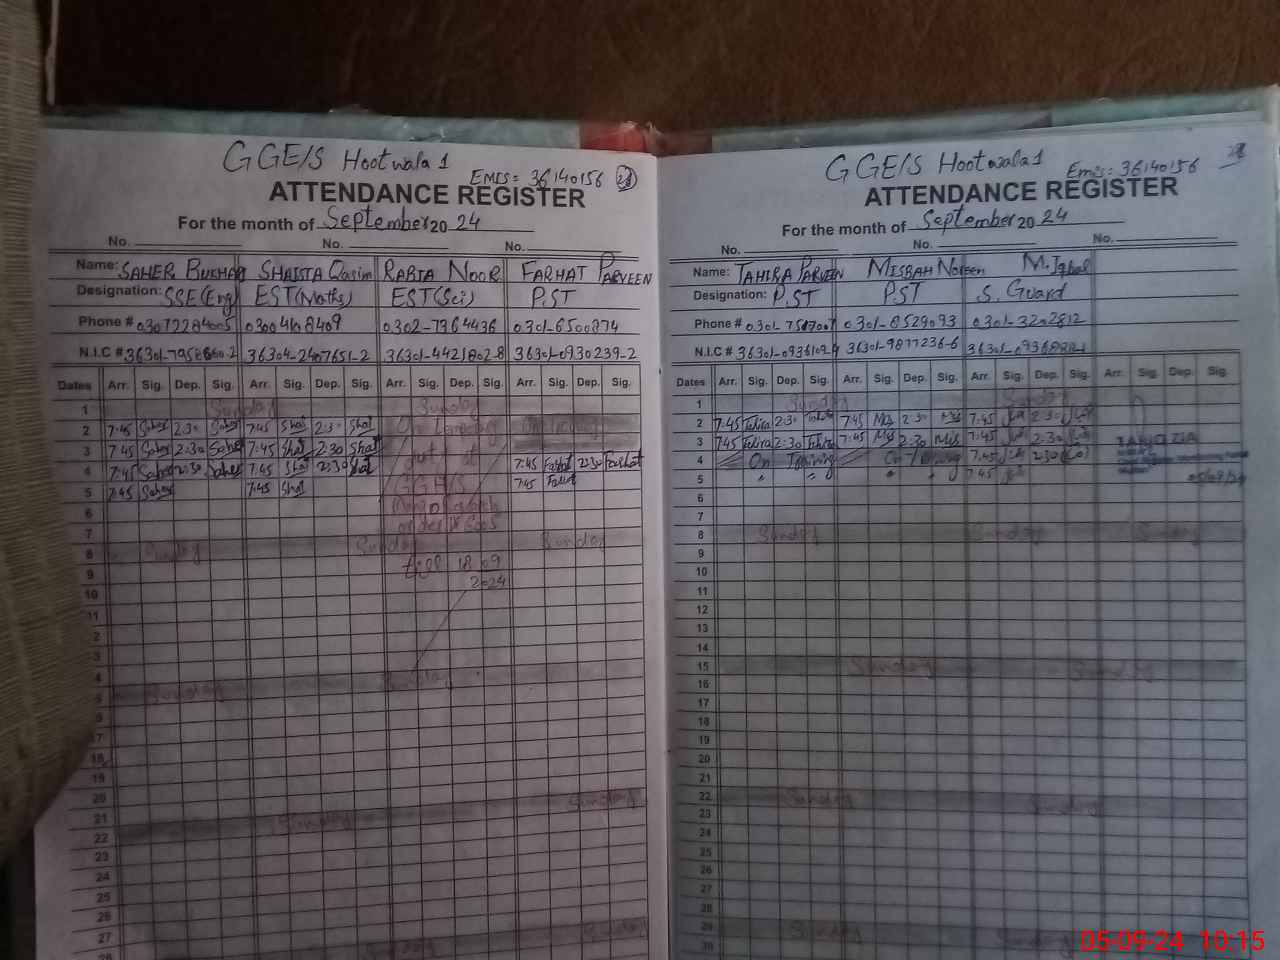 GGE/S Hootwala 1
EMIS = 36140156 28
ATTENDANCE REGISTER
For the month of September 20 24
No. No. No.
Name: SAHER BUKHARI SHAISTA Qasim RABIA NOOR FARHAT PARVEEN
Designation: SSE(Eng) EST(Maths) EST(Sci) P.ST
Phone # 03072284005 03004108409 0302-7964436 0301-6500874
N.I.C # 36301-7958660-2 36304-2407651-2 36301-4421802-8 36301-0930239-2
Dates Arr. Sig. Dep. Sig. Arr. Sig. Dep. Sig. Arr. Sig. Dep. Sig. Arr. Sig. Dep. Sig.
1 Sunday Sunday
2 7:45 Saher 2:30 Saher 7:45 Shai 2:30 Shai
3 7:45 Saher 2:30 Saher 7:45 Shai 2:30 Shai
4 7:45 Saher 2:30 Saher 7:45 Shai 2:30 Shai 7:45 Farhat 2:30 Farhat
5 7:45 Saher 7:45 Shai GGH/S 7:45 Farhat
6
7
8 Sunday Sunday Sunday
9 18 09
10 2024
11
2
3
4 Sunday
5 Sunday
6
17
18
19
20 Sunday
21 Sunday
22
23
24
25
26
27 Sunday
28 Sunday
GGE/S Hootwala 1
Emis: 36140156 28
ATTENDANCE REGISTER
For the month of September 20 24
No. No. No.
Name: TAHIRA PARVEEN MISBAH Noreen M. Iqbal
Designation: P.ST P.ST S. Guard
Phone # 0301-7517007 0301-8529093 0301-3202812
N.I.C # 36301-9877236-6
Dates Arr. Sig. Dep. Sig. Arr. Sig. Dep. Sig. Arr. Sig. Dep. Sig. Arr. Sig. Dep. Sig.
1 Sunday Sunday
2 7:45 Tahira 2:30 Tahira 7:45 Mis 2:30 Mis 7:45 2:30
3 7:45 Tahira 2:30 Tahira 7:45 Mis 2:30 Mis 7:45 2:30
4 On Training On Training 7:45 2:30
5 " " " " 7:45 05/09/24
6
7
8 Sunday Sunday Sunday
9
10
11
12
13
14
15 Sunday Sunday
16
17
18
19
20
21
22 Sunday Sunday
23
24
25
26
27
28
29 Sunday Sunday
30
05-09-24 10:15